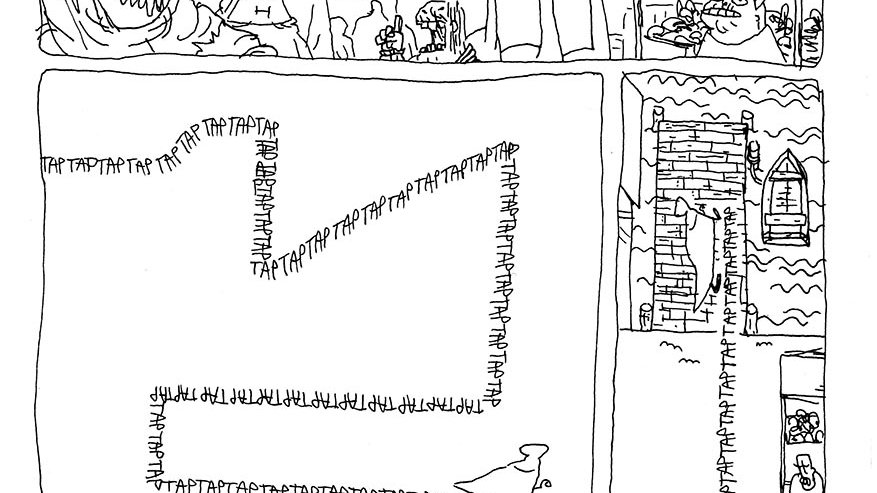 TAPTAPTAPTAP TAP TAPTAPTAPTAP
TAPTAPTAPTAPTAP
TAPTAPTAPTAPTAPTAPTAPTAPTAPTAP
TAPTAPTAPTAPTAPTAPTAPTAPTAPTAP
TAPTAPTAPTAPTAPTAPTAPTAPTAPTAPTAPTAP
TAPTAPTAP
TAPTAPTAPTAPTAPTAPTAPTAPTAPTAP
TAPTAPTAPTAPTAPTAPTAPTAPTAPTAPTAP